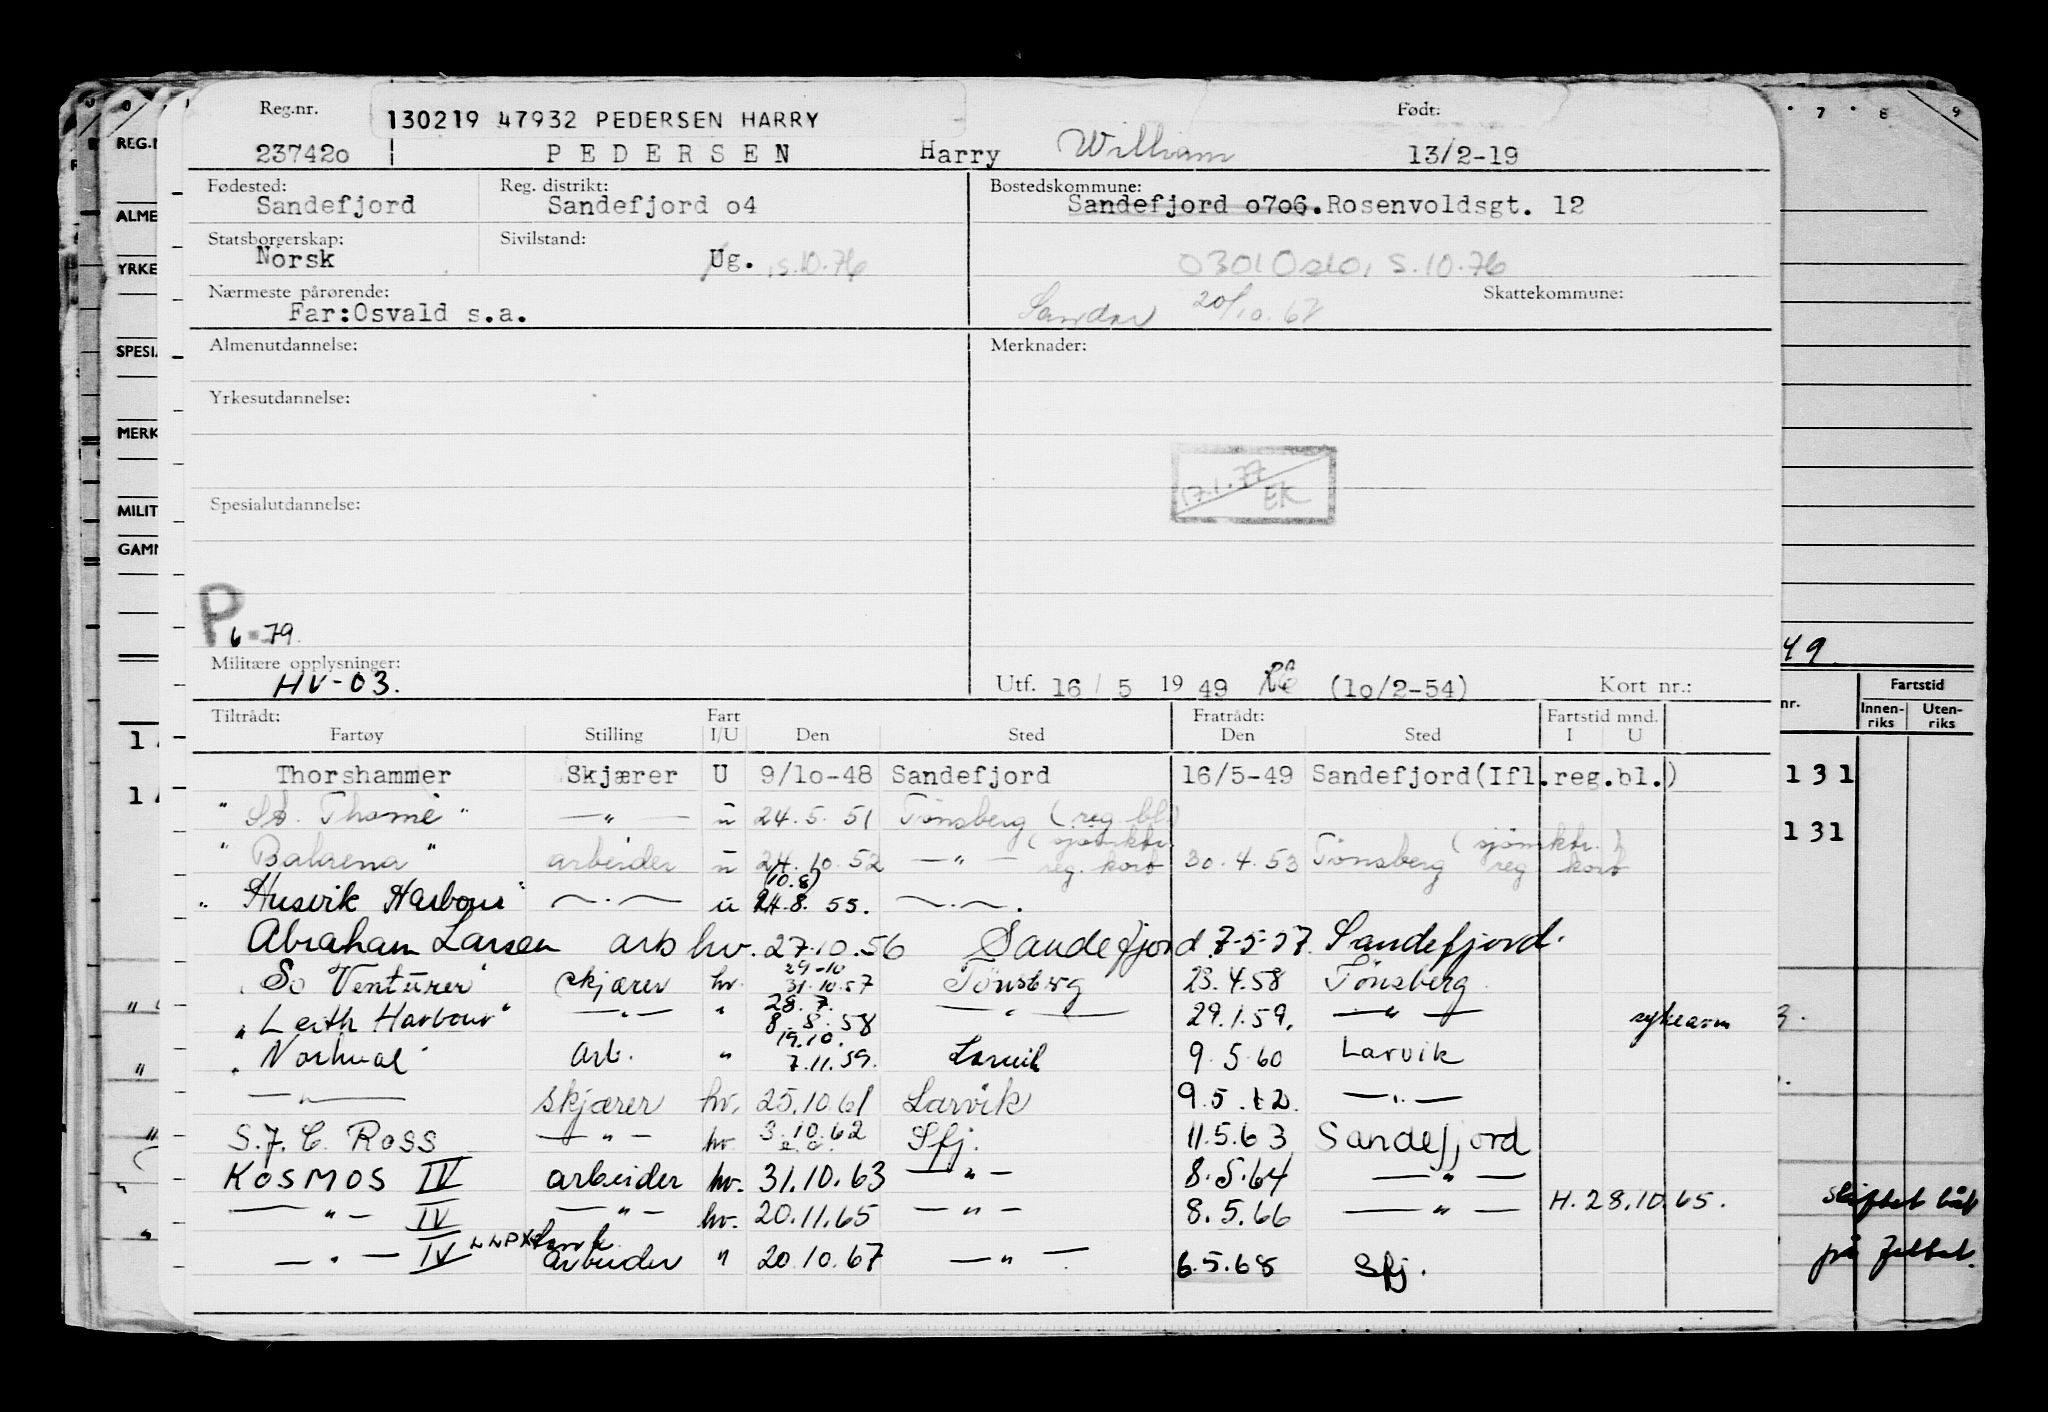 Reg.nr. 130219 47932 PEDERSEN HARRY Født:
237420 PEDERSEN Harry William 13/2-19
Fødested: Reg. distrikt: Bostedskommune:
Sandefjord Sandefjord o4 Sandefjord o7o6. Rosenvoldsgt. 12
Statsborgerskap: Sivilstand:
Norsk Ug. 5.10.76 0301 Oslo, 5.10.76
Nærmeste pårørende: Skattekommune:
Far:Osvald s.a. Sandar 20/10.67
Almenutdannelse: Merknader:
Yrkesutdannelse:
17.1.77 EK
Spesialutdannelse:
P 6-79.
Militære opplysninger:
HV-03. Utf. 16/5 1949 (1o/2-54) Kort nr.:
Tiltrådt: Fart Fratrådt: Fartstid mnd.
Fartøy Stilling I/U Den Sted Den Sted I U
Thorshammer Skjærer U 9/1o-48 Sandefjord 16/5-49 Sandefjord(Ifl.reg.bl.)
" St. Thomé " —"— u 24.5.51 Tønsberg (reg bl.)
" Balaena " arbeider u 24.10.52 —"— (sjømktr. reg. kort 30.4.53 Tønsberg (sjømktr.) reg kort
" Husvik Harbour" —"— u (10.8) 24.8.55. —"—.
Abraham Larsen arb hv. 27.10.56 Sandefjord 7-5-57. Sandefjord.
So Venturer skjærer hv. 29-10 31.10.57 Tönsberg 23.4.58 Tönsberg
" Leith Harbour" —"— " 28.7. 8.8.58 —"— 29.1.59. —"—
" Norhval Arb. " 19.10. 7.11.59. Larvik 9.5.60 Larvik
—"— skjærer hv. 25.10.61 Larvik 9.5.62. —"—
S.J.C. Ross —"— hv. 3.10.62 Sfj. 11.5.63 Sandefjord
KOSMOS IV arbeider hv. 31.10.63 —"— 8.5.64 —"—
—"— IV —"— hv. 20.11.65 —"— 8.5.66 —"— H.28.10.65.
—"— IV arbeider " 20.10.67 —"— 6.5.68 Sfj.
REG.N
ALME
YRKE
SPESIA
MERK
MILIT
GAMM
7 8 9
49.
nr. Fartstid
Innen-riks Uten-riks
131
131
skiftet båt
på feltet.